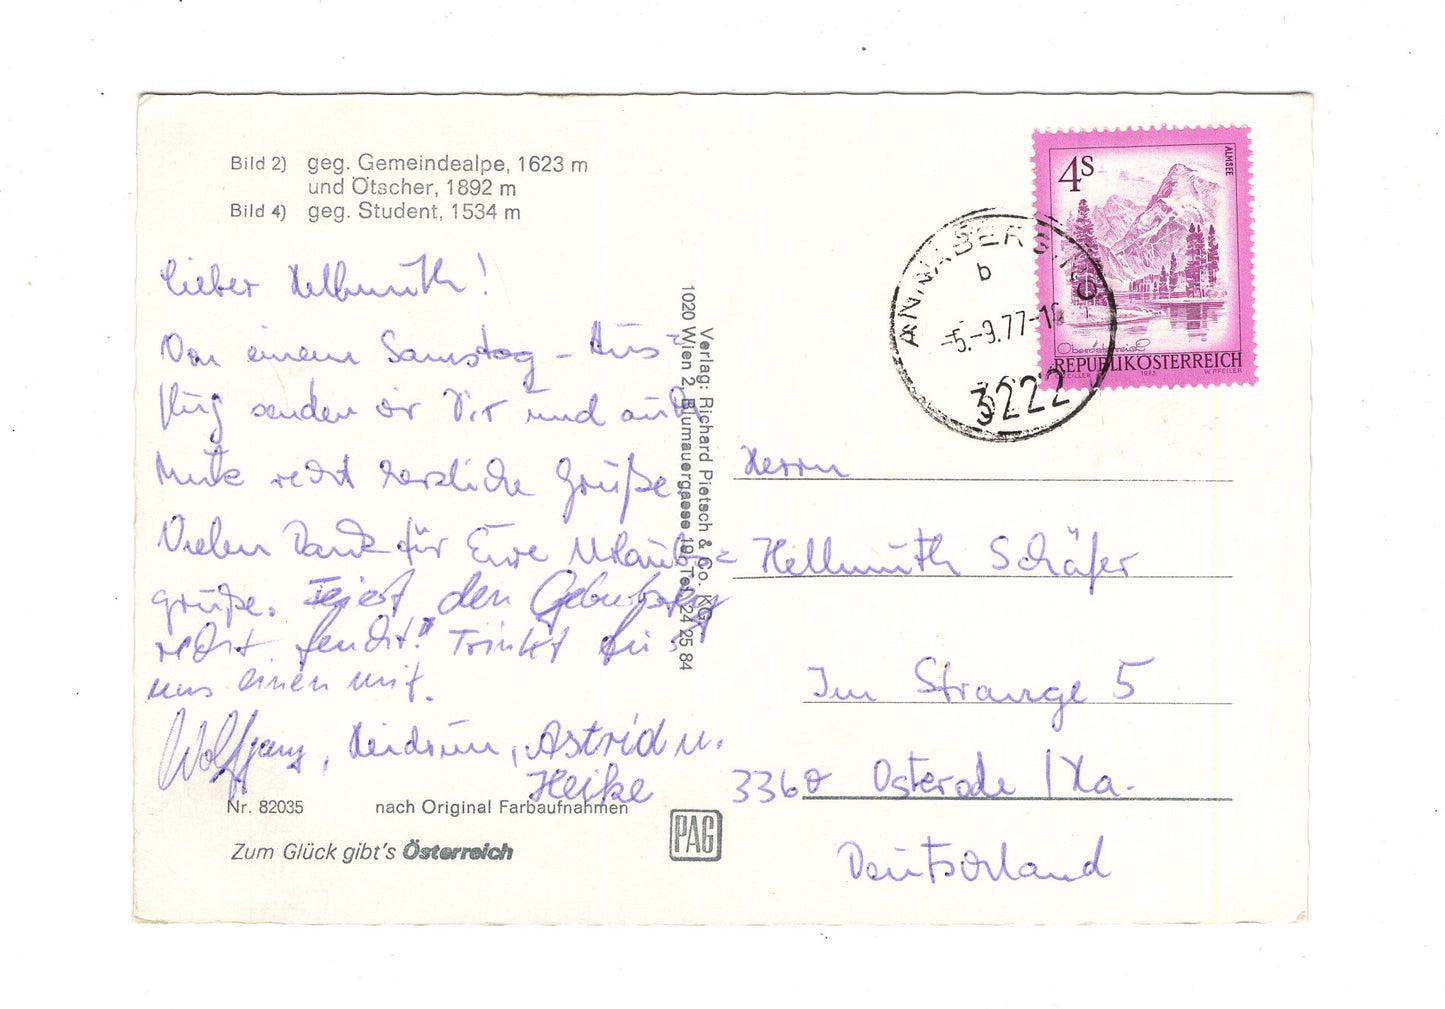 Bild 2) geg. Gemeindealpe, 1623 m
und Ötscher, 1892 m
Bild 4) geg. Student, 1534 m
Lieber Hellmuth!
Von einem Samstag-Aus=
flug senden wir Dir und auch
recht herzliche Grüße.
Vielen Dank für Eure Urlaubs=
grüße. Feiert den Geburtstag
recht feucht! Trinkt für
uns einen mit.
Wolfgang, Heidrun, Astrid u.
Heike
Nr. 82035 nach Original Farbaufnahmen
Zum Glück gibt's Österreich
Verlag: Richard Pietsch & Co. KG
1020 Wien 2, Blumauergasse 19, Tel. 24 25 84
PAG
4S
ALMSEE
Oberösterreich
REPUBLIK ÖSTERREICH
ZEILLER 1973 W. PFEILER
ANNABERG, NÖ
b
-5.-9.77-
3222
Herrn
Hellmuth Schäfer
Im Strange 5
3360 Osterode/Ha.
Deutschland